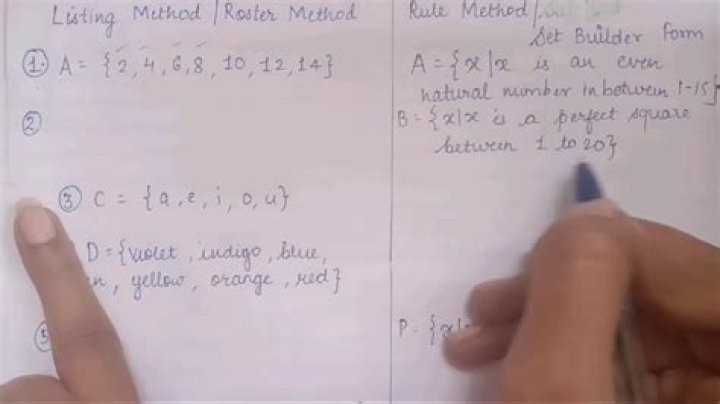 Listing Method / Roster Method
① A = {2, 4, 6, 8, 10, 12, 14}
②
③ C = {a, e, i, o, u}
D = {violet, indigo, blue,
, yellow, orange, red}
⑤
Rule Method /
Set Builder Form
A = {x|x is an even
natural number in between 1-15}
B = {x|x is a perfect square
between 1 to 20}
P = {x|